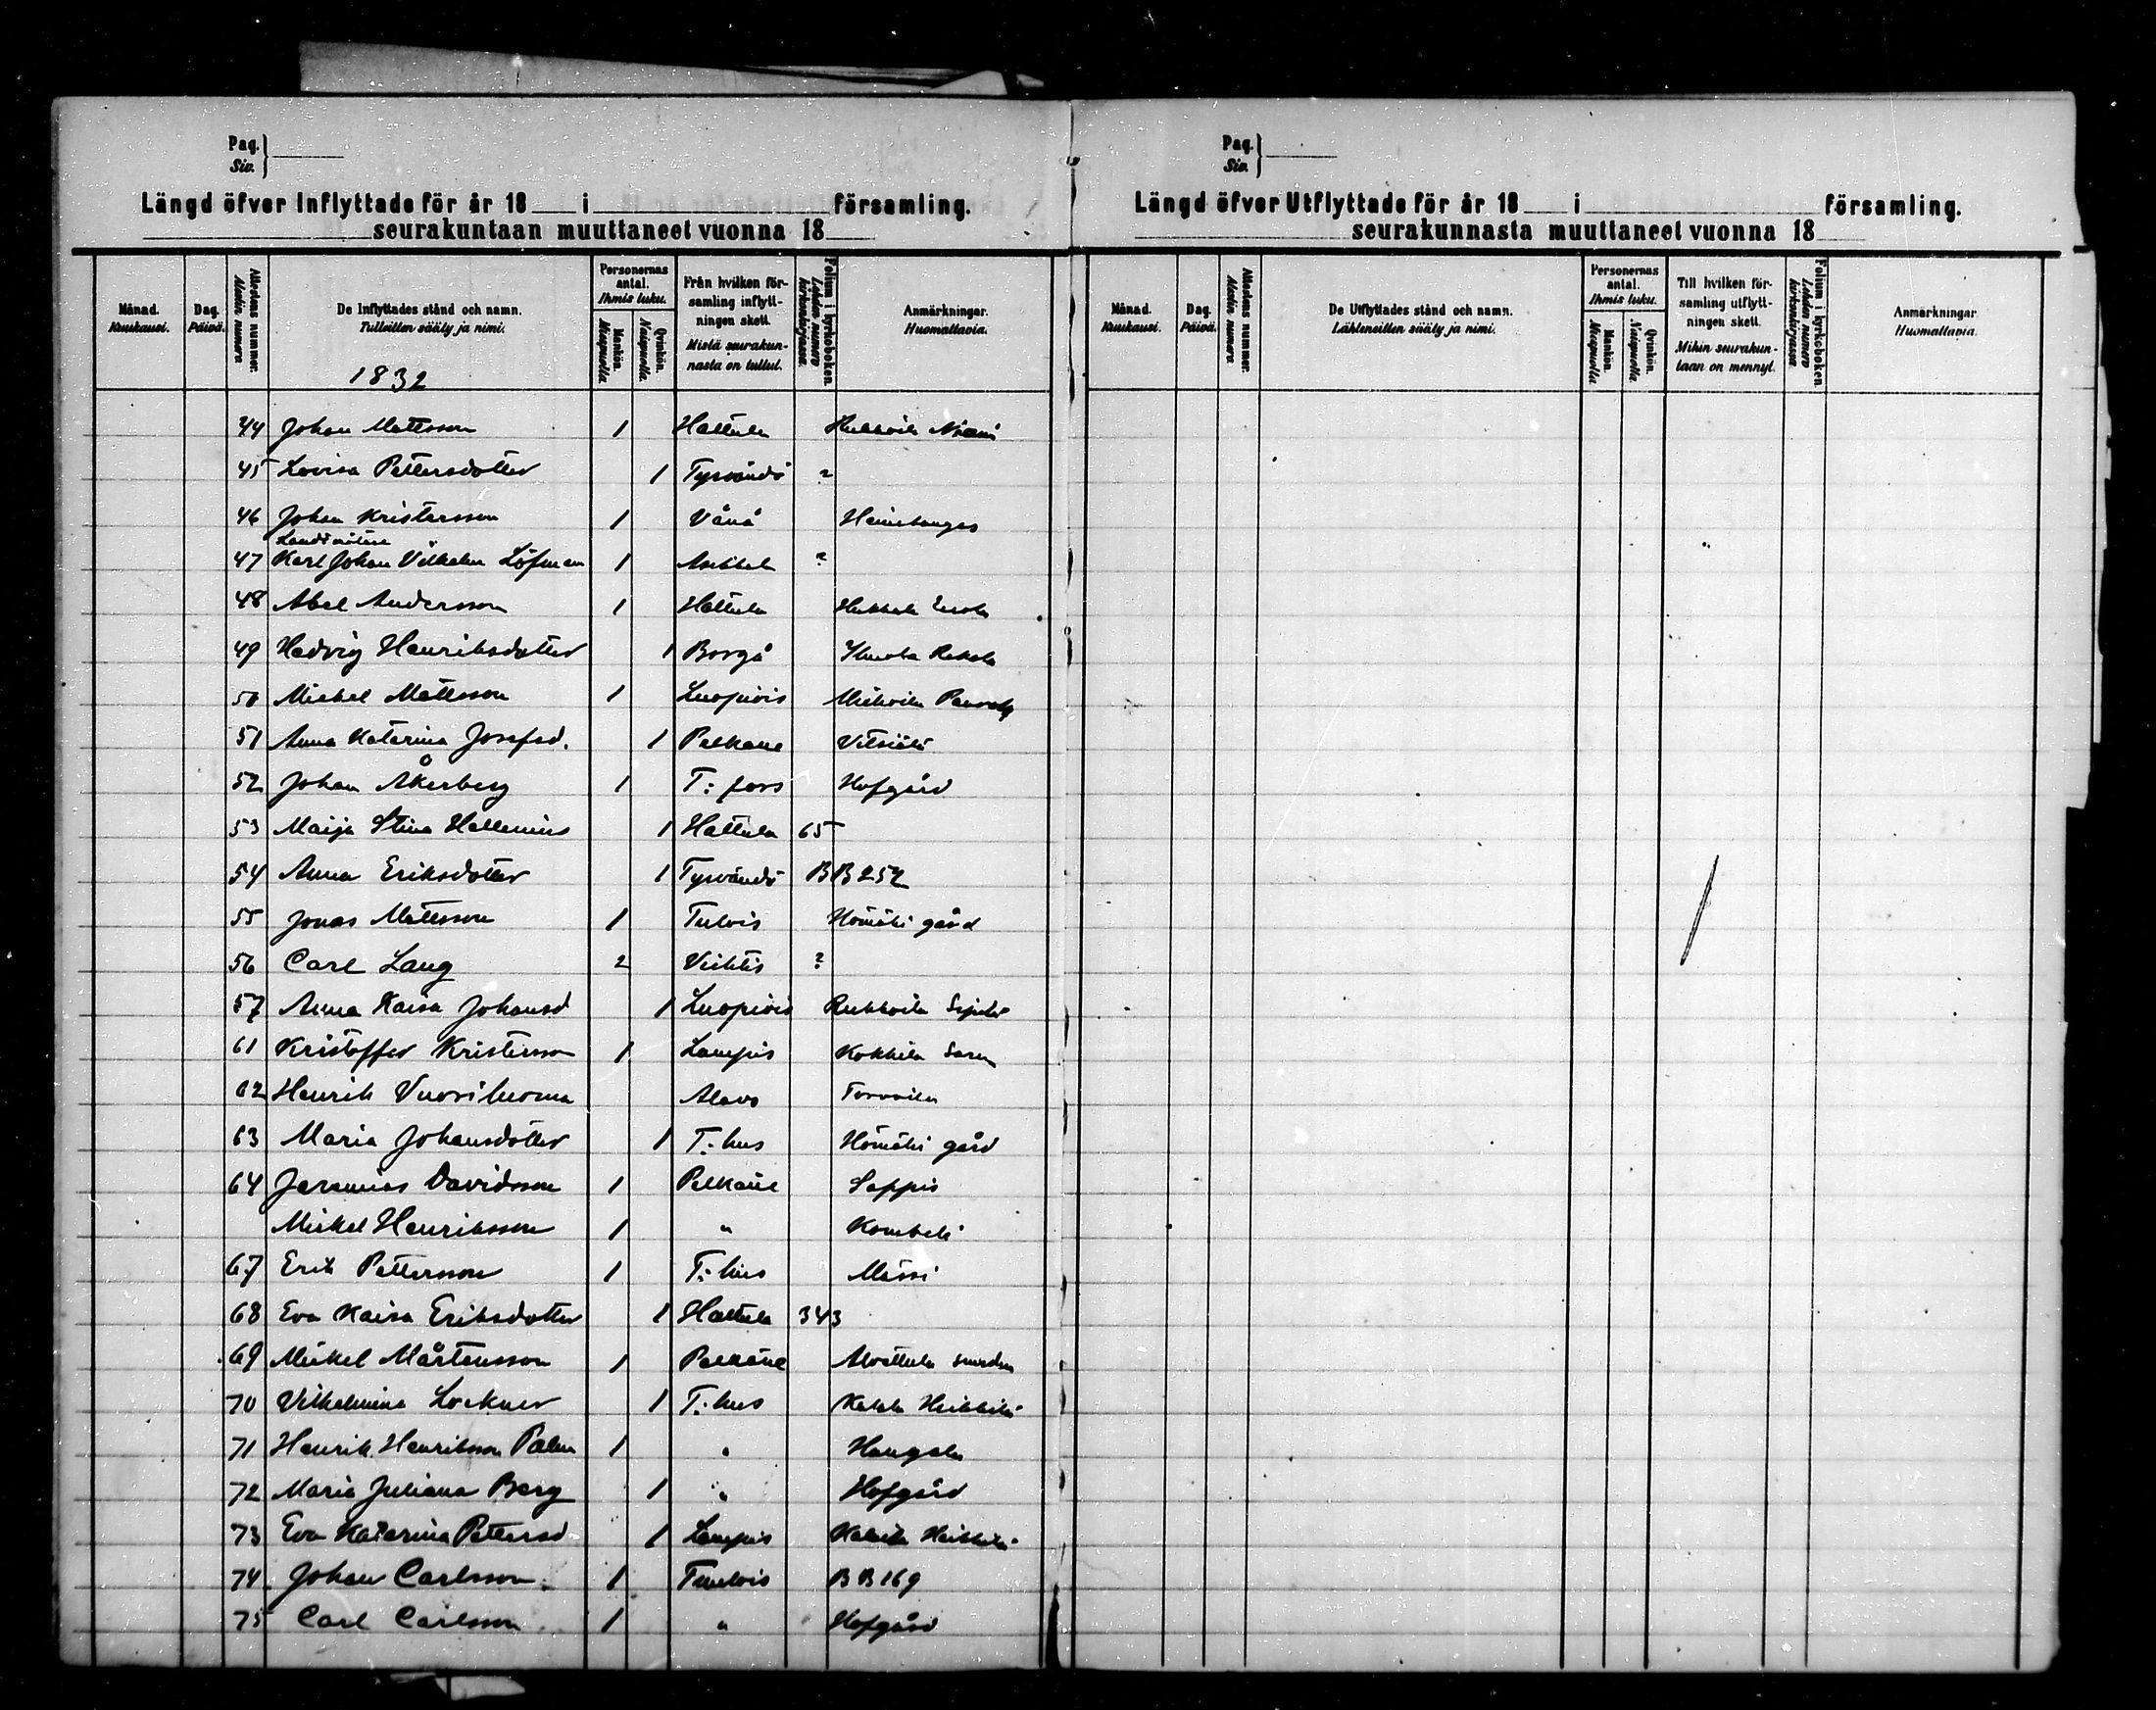 Pag.
Siv.
Längd öfver Inflyttade för år 18 i församling.
seurakuntaan muuttaneet vuonna 18
Månad. Kuukausi.
Dag. Päivä.
Attestens nummer. Alestin numero.
De Inflyttades stånd och namn.
Tulleitten sääty ja nimi.
Personernas antal.
Ihmis luku.
Mankön. Miespuolia
Qvinkön. Naispuolia
Från hvilken församling inflyttningen skett.
Mistä seurakunnasta on tullut.
Folium i kyrkoboken. Lehden numero kirkonkirjassa.
Anmärkningar.
Huomattavia.
1832
44 Johan Mattsson 1 Hattula
45 Lovisa Pettersdotter 1 Tyrvändö ?
46 Johan Kristersson 1 Vånå
Landtmätare
47 Karl Johan Vilhelm Löfman 1 ?
48 Abel Andersson 1 Hattula
49 Hedvig Henriksdotter 1 Borgå
50 Mickel Mattsson 1 Luopiois
51 Anna Katarina Josefsd. 1 Pelkäne
52 Johan Åkerberg 1 T:fors Hofgård
53 Maija Stina Hallenius 1 Hattula 65
54 Anna Eriksdotter 1 Tyrvändö BB 252
55 Jonas Mattsson 1 Tulois Hömäki gård
56 Carl Lang 2 Vichtis ?
57 Anna Kaisa Johansd 1 Luopiois
61 Kristoffer Kristersson 1 Lampis Kokkila
62 Henrik Vuoriluoma Alavo
63 Maria Johansdotter 1 T:hus Hömäki gård
64 Jeremias Davidsson 1 Pelkäne Sappis
Mickel Henriksson 1 "
67 Erik Pettersson 1 T:hus Mässi
68 Eva Kaisa Eriksdotter 1 Hattula 343
69 Mickel Mårtensson 1 Pelkäne Alvettula
70 Vilhelmina Lockner 1 T:hus
71 Henrik Henriksson Palm 1 "
72 Maria Juliana Berg 1 " Hofgård
73 Eva Katarina Petersd 1 Lampis
74 Johan Carlsson 1 Tulois BB 169
75 Carl Carlsson 1 " Hofgård
Pag.
Siv.
Längd öfver Utflyttade för år 18 i församling.
seurakunnasta muuttaneet vuonna 18
Månad. Kuukausi.
Dag. Päivä.
Attestens nummer. Alestin numero.
De Utflyttades stånd och namn.
Lähteneitten sääty ja nimi.
Personernas antal.
Ihmis luku.
Mankön. Miespuolia
Qvinkön. Naispuolia.
Till hvilken församling utflyttningen skett.
Mihin seurakuntaan on mennyt.
Folium i kyrkoboken. Lehden numero kirkonkirjassa.
Anmärkningar
Huomattavia.